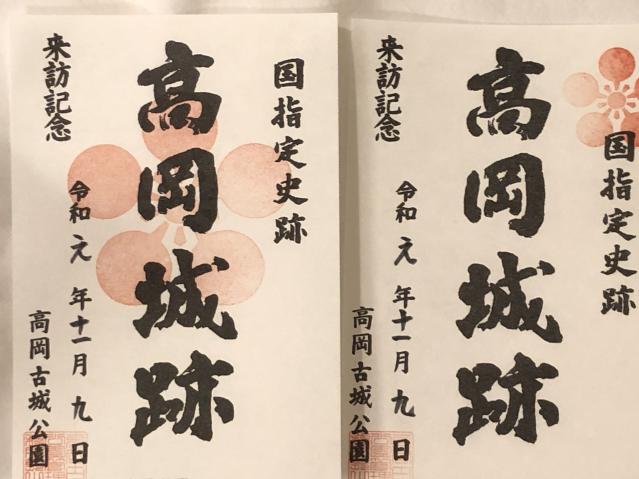 国指定史跡
高岡城跡
来訪記念
令和元年十一月九日
高岡古城公園
国指定史跡
高岡城跡
来訪記念
令和元年十一月九日
高岡古城公園